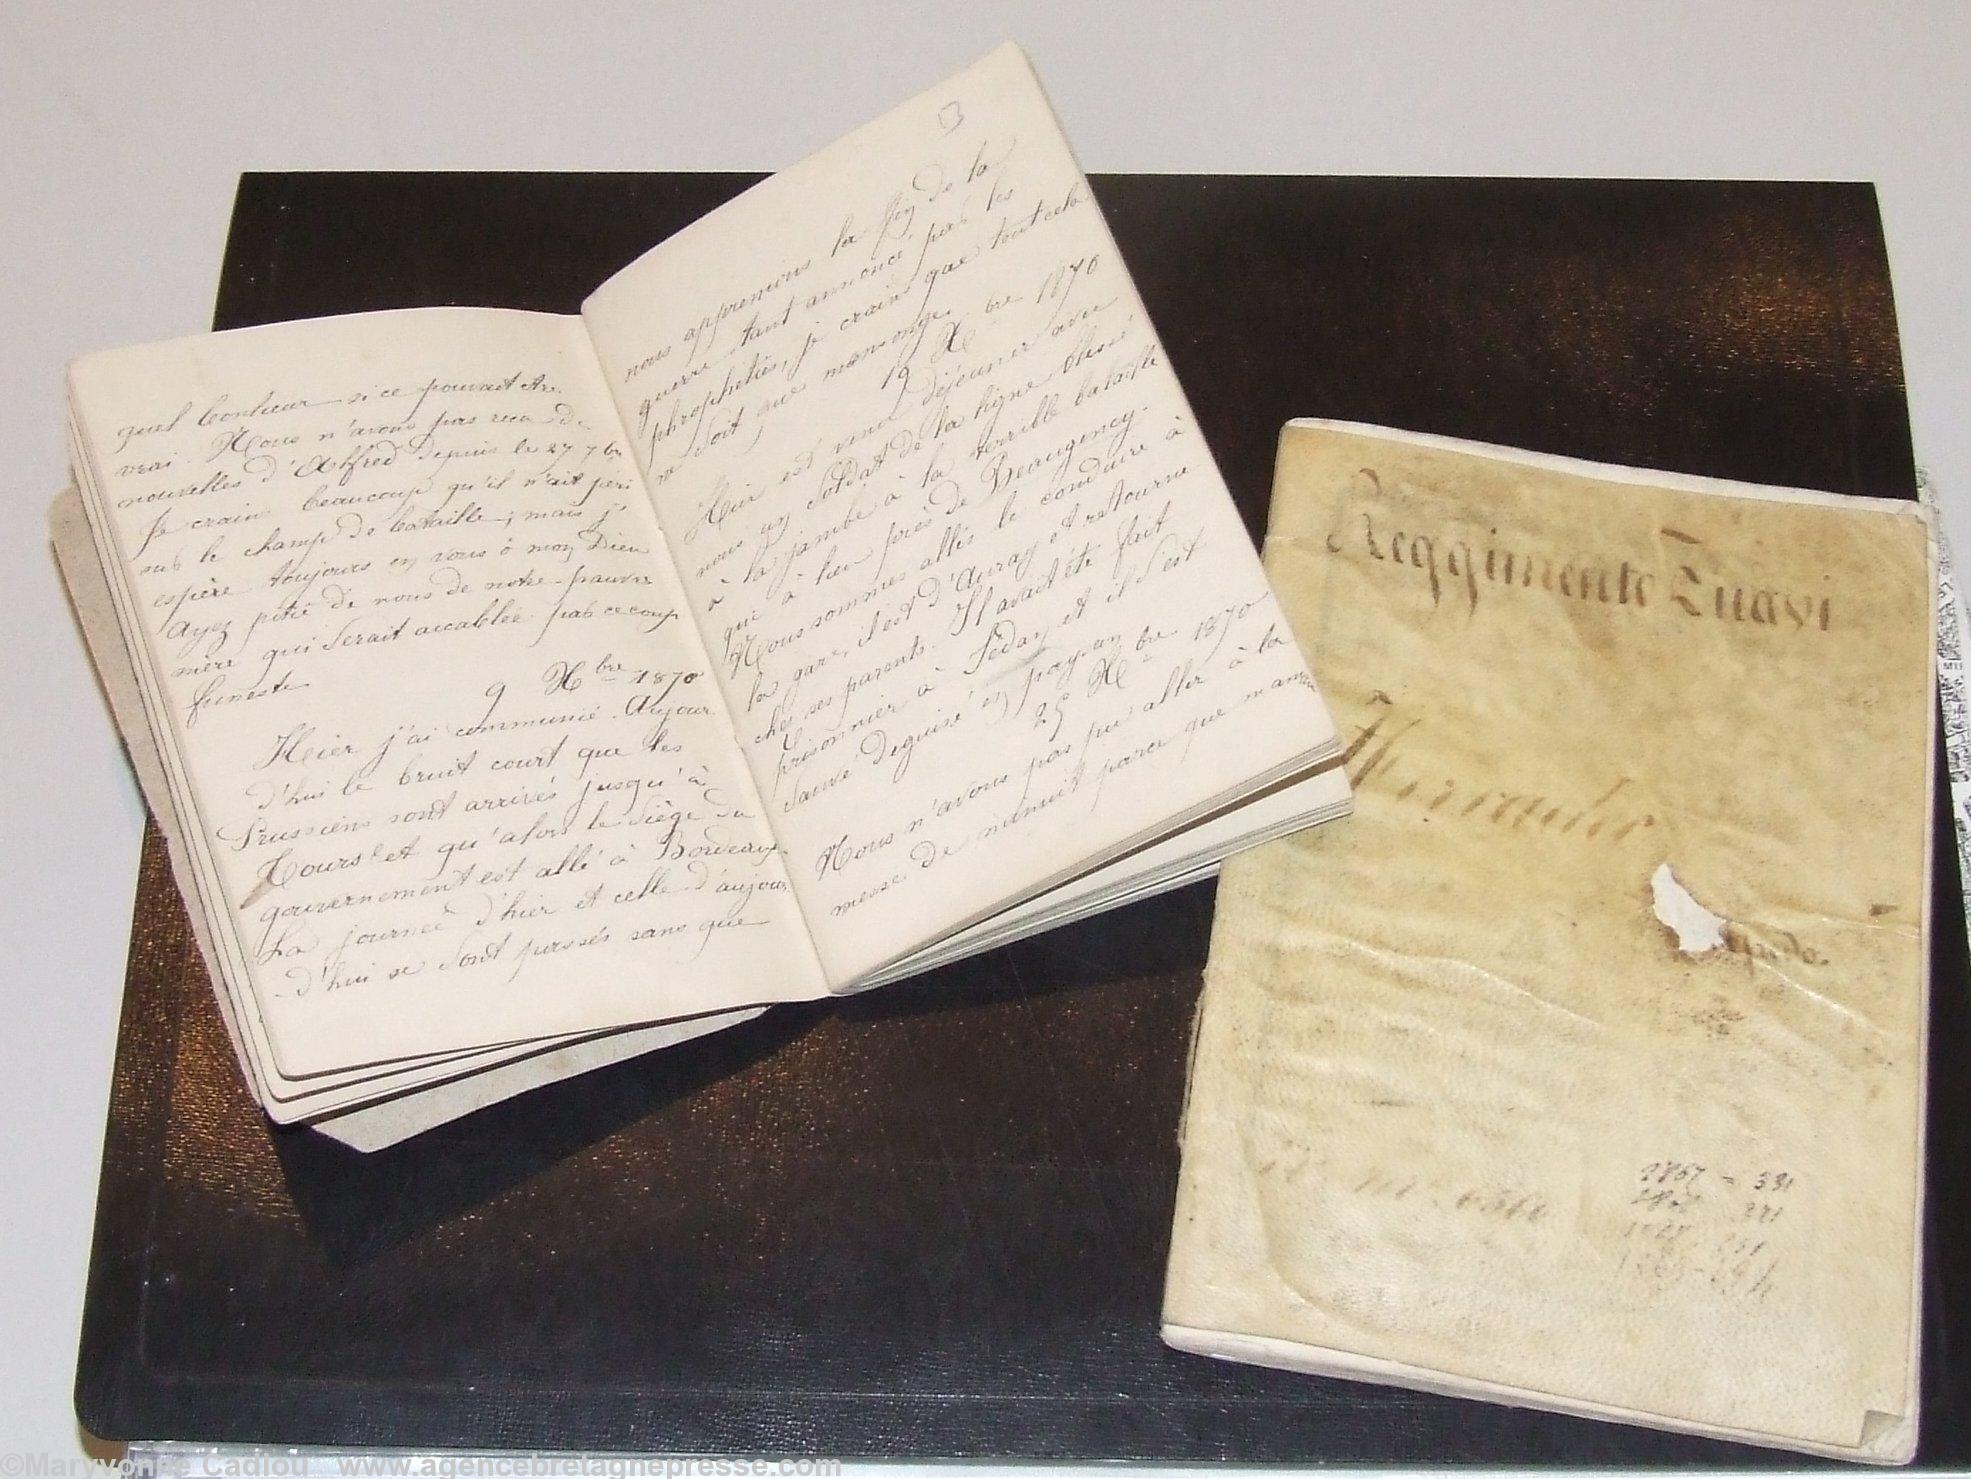 quel bonheur si ce pouvait être
vrai. Nous n'avons pas reçu de
nouvelles d'Alfred depuis le 27 7bre
Je crains beaucoup qu'il n'ait péri
sur le champ de bataille; mais j'
espère toujours en vous ô mon Dieu
Ayez pitié de nous de notre pauvre
mère qui serait accablée par ce coup
funeste
9 Xbre 1870
Hier j'ai communié. Aujour
d'hui le bruit court que les
Prussiens sont arrivés jusqu'à
Tours et qu'alors le siège du
gouvernement est allé à Bordeaux.
La journée d'hier et celle d'aujour
d'hui se sont passés sans que
nous apprenions la fin de la
guerre tant annoncé, par les
phrophéties, je crains que tout cela
ne soit que mensonge.
19 Xbre 1870
Hier est venu déjeuner avec
nous un soldat de la ligne blessé
à la jambe à la terrible bataille
qui a lieu près de Beaugency.
Nous sommes allés le conduire à
la gare, il est d'Auray et retourne
chez ses parents. Il avait été fait
prisonnier à Sédan et il s'est
sauvé déguisé en paysan
25 Xbre 1870
Nous n'avons pas pu aller à la
messe de minuit parce que maman
Reggimento Zuavi
2867 = 331
©Maryvonne Cadiou www.agencebretagnepresse.com